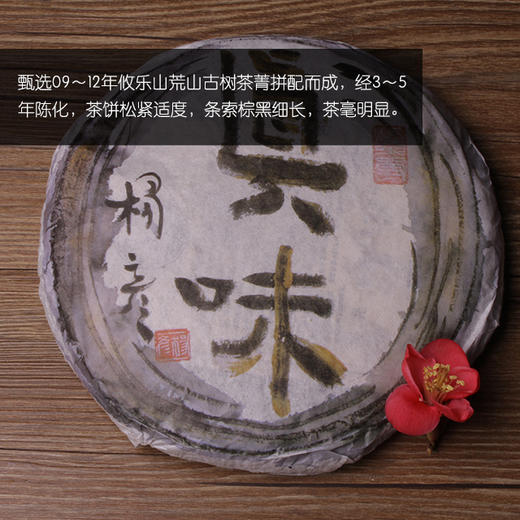 甄选09～12年攸乐山荒山古树茶菁拼配而成，经3～5
年陈化，茶饼松紧适度，条索棕黑细长，茶毫明显。
真味
杨彦